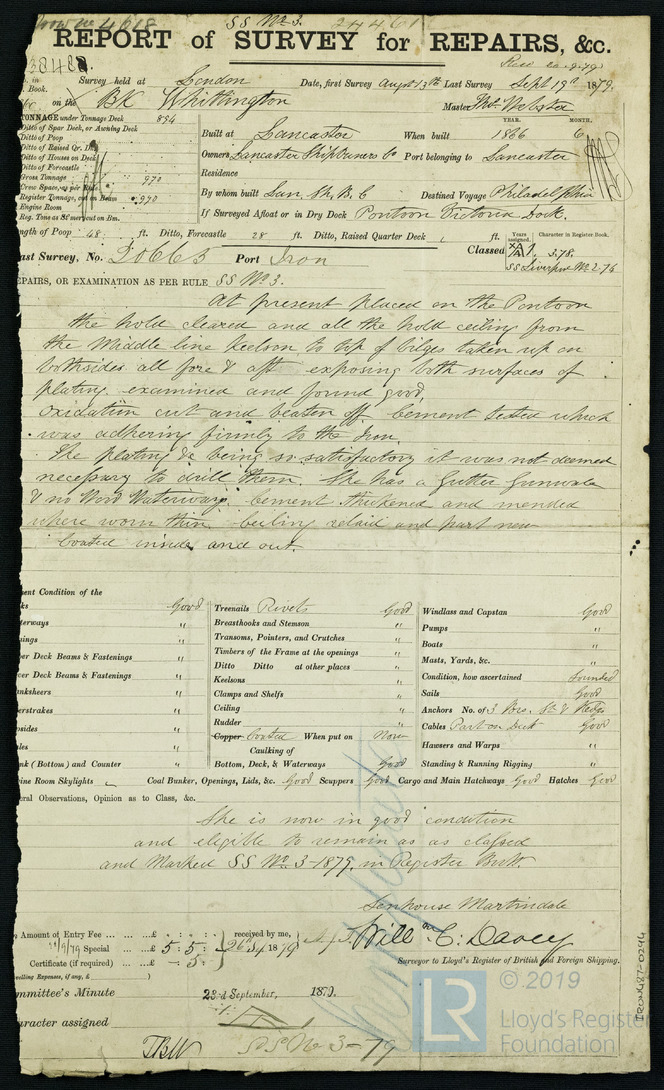 SS No. 3.
REPORT of SURVEY for REPAIRS, &c.
Survey held at London Date, first Survey Augt 13th Last Survey Sept 19th 1879.
on the Bk Whittington Master Thos Webster
TONNAGE under Tonnage Deck 894
Ditto of Spar Deck, or Awning Deck
Ditto of Poop
Ditto of Raised Qr. Deck
Ditto of Houses on Deck
Gross Tonnage 970
Crew Space, as per Rule
Register Tonnage, cut on Beam 970
Engine Room
Reg. Tons as Steamer cut on Bm.
YEAR. MONTH.
Built at Lancaster When built 1866 6
Owners Lancaster Shipowners Co Port belonging to Lancaster
Residence
By whom built Lan. Sh. B. C Destined Voyage Philadelphia
If Surveyed Afloat or in Dry Dock Pontoon Victoria Dock.
ngth of Poop 48 ft. Ditto, Forecastle 28 ft. Ditto, Raised Quarter Deck ft.
Years assigned. Character in Register Book.
ast Survey, No. 20663 Port Iron Classed A1. 3.78.
SS Liverpool No. 2-76
EPAIRS, OR EXAMINATION AS PER RULE SS No 3.
At present placed on the Pontoon
the hold cleared and all the hold ceiling from
the Middle line Keelson to top of bilges taken up on
both sides all fore & aft exposing both surfaces of
plating. examined and found good
oxidation cut and beaten off. cement tested which
was adhering firmly to the Iron.
The plating &c being so satisfactory it was not deemed
necessary to drill them. She has a Gutter Gunwale
& no Wood Waterways. cement thickened and mended
where worn thin. Ceiling relaid and part new
Coated inside and out.
ent Condition of the
ks Good
terways "
ings "
per Deck Beams & Fastenings "
wer Deck Beams & Fastenings "
nksheers "
erstrakes "
psides "
ales "
nk (Bottom) and Counter "
Treenails Rivets Good
Breasthooks and Stemson "
Transoms, Pointers, and Crutches "
Timbers of the Frame at the openings "
Ditto Ditto at other places "
Keelsons "
Clamps and Shelfs "
Ceiling "
Rudder "
Copper Coated When put on Now
Caulking of
Bottom, Deck, & Waterways Good
Windlass and Capstan Good
Pumps "
Boats "
Masts, Yards, &c. "
Condition, how ascertained Sounded
Sails Good
Anchors No. of 3 Bow. St & Kedge
Cables Part on Deck Good
Hawsers and Warps "
Standing & Running Rigging "
ine Room Skylights Coal Bunker, Openings, Lids, &c. Good Scuppers Good Cargo and Main Hatchways Good Hatches Good
eral Observations, Opinion as to Class, &c.
She is now in good condition
and eligible to remain as as classed
and Marked SS No. 3-1879. in Register Book.
Senhouse Martindale
Will m C. Davey
Surveyor to Lloyd's Register of British and Foreign Shipping.
Amount of Entry Fee £ received by me,
Special £ 5 : 5 : 26 Sep 1879
Certificate (if required) £ 5 :
velling Expenses, if any, £ )
mmittee's Minute 23rd September, 1879.
aracter assigned
SS No 3-79
IRON487-0294
© 2019
LR
Lloyd's Register
Foundation